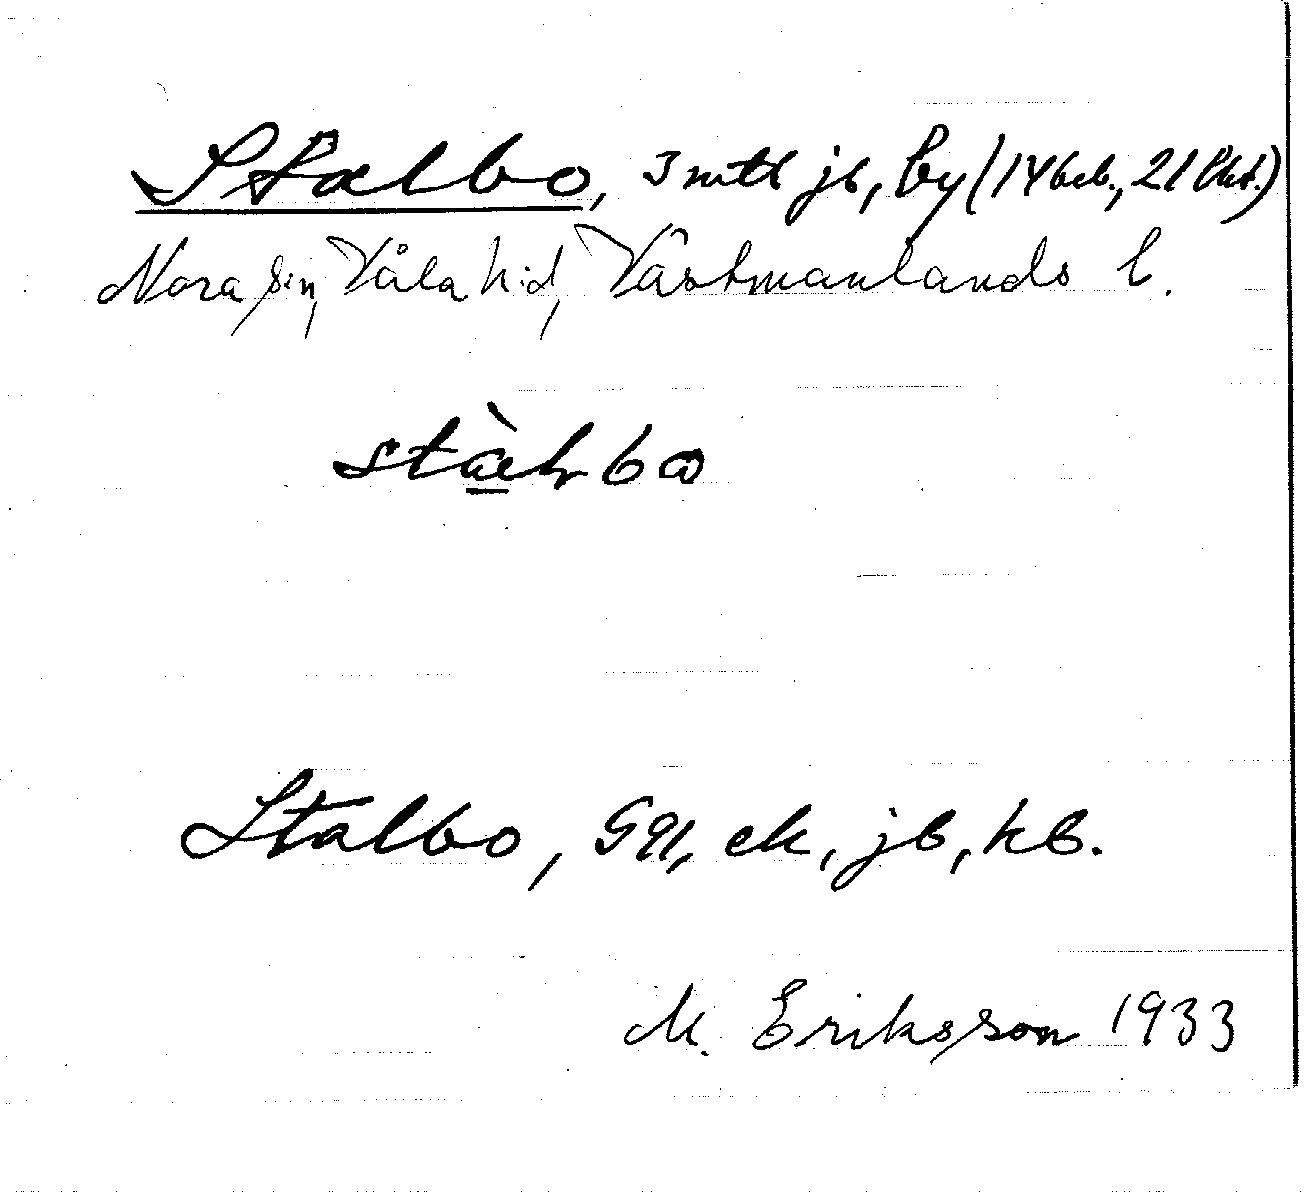 Stalbo, 3 mtl jb, by (14 beb., 21 lht.)
Nora sn, Våla hd, Västmanlands l.
stàlbω
Stalbo, GK, ek, jb, kb.
M. Eriksson 1933